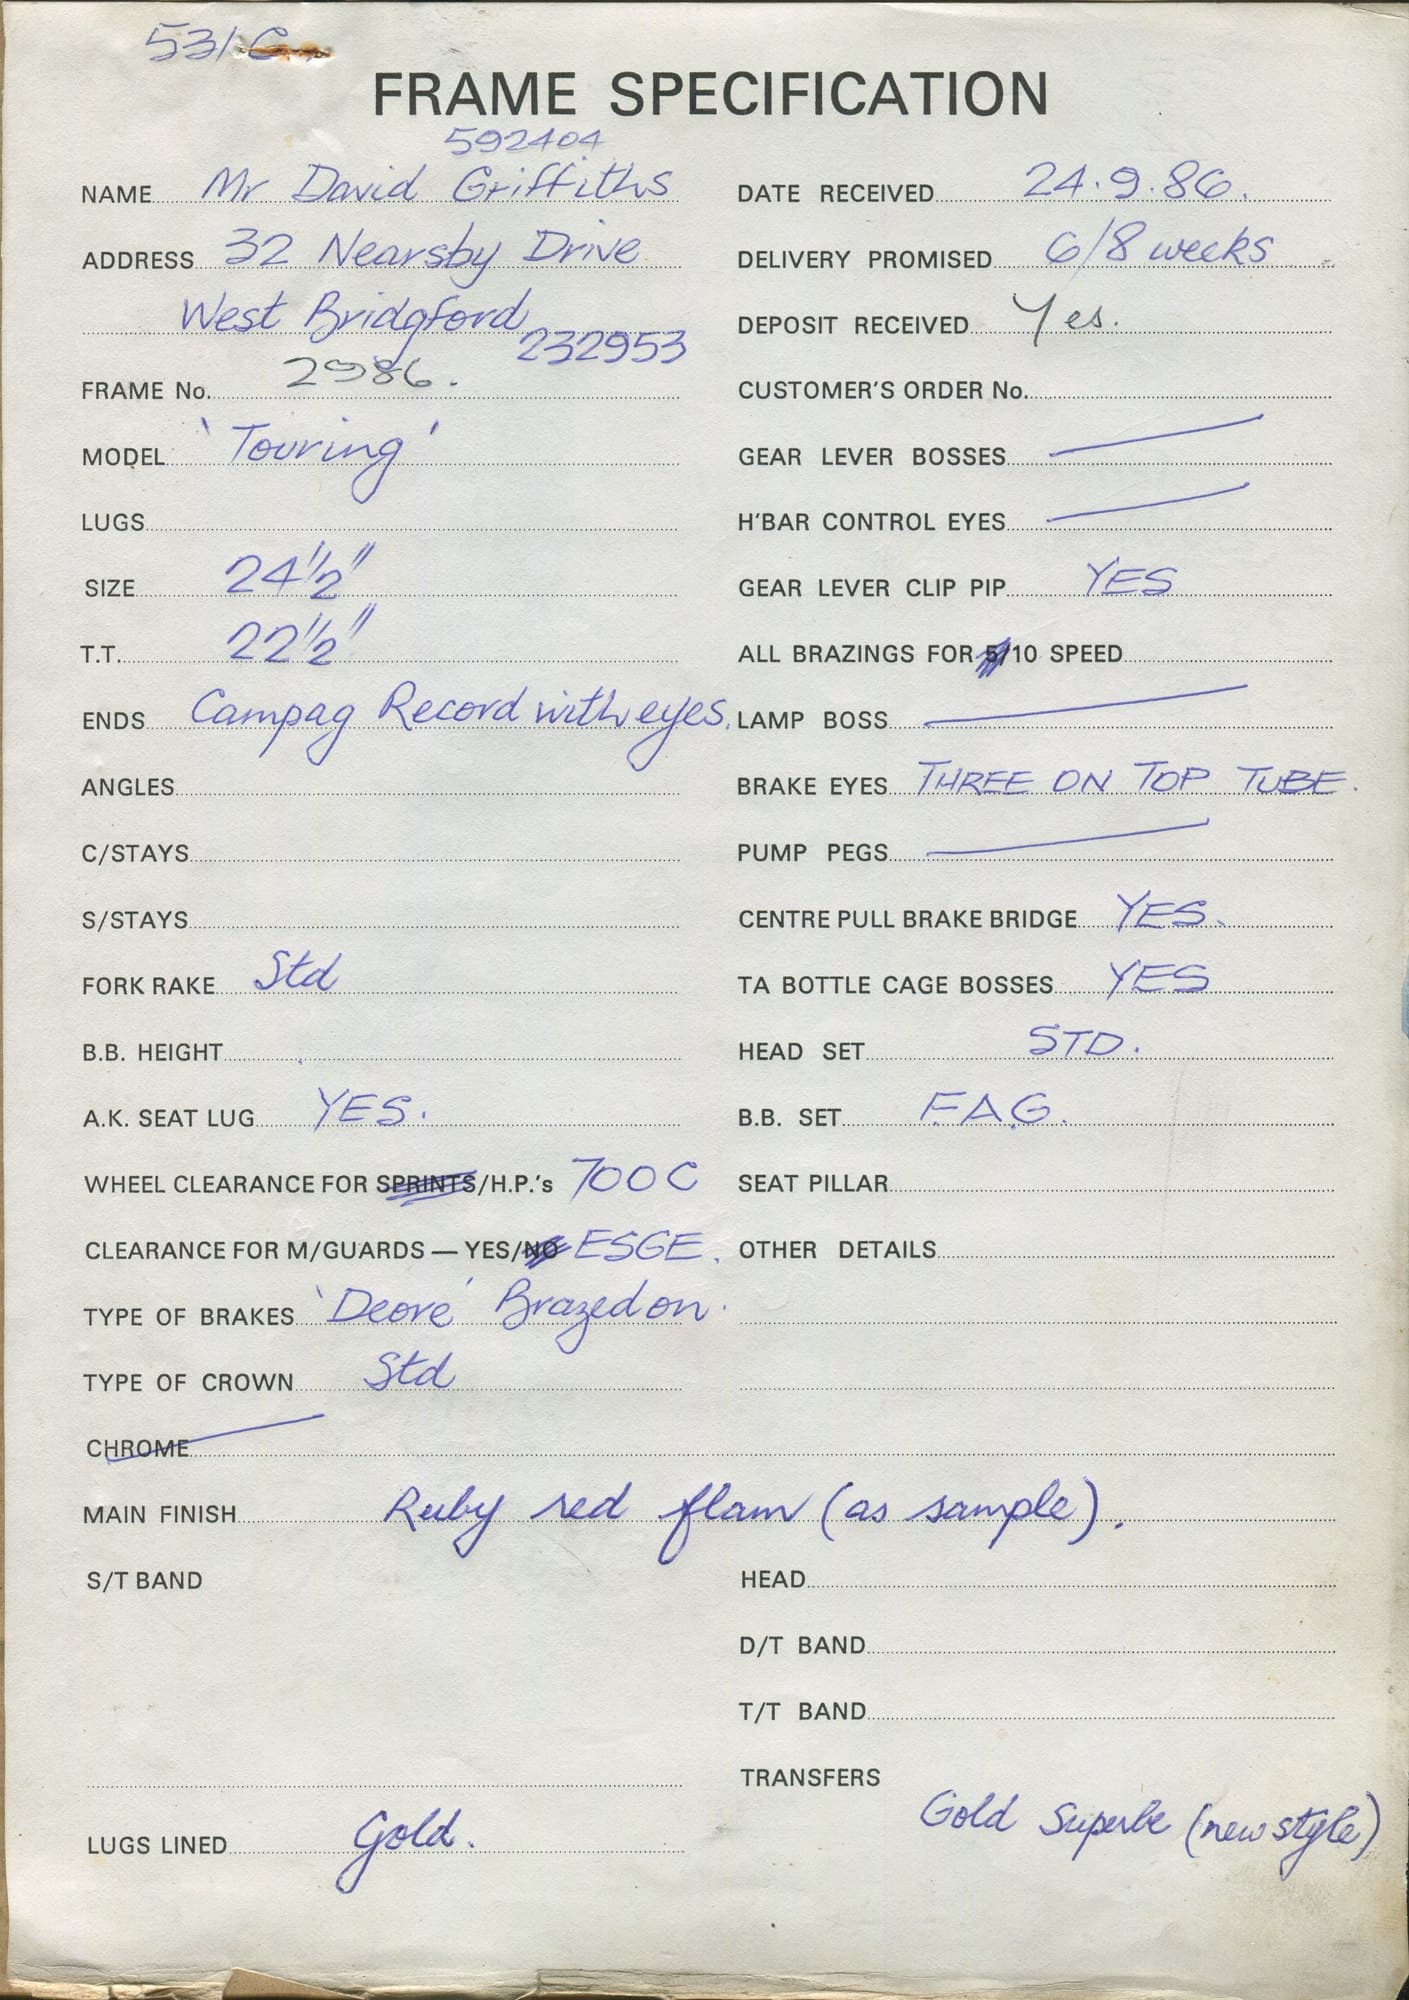 531 C
FRAME SPECIFICATION
592404
NAME Mr David Griffiths
ADDRESS 32 Nearsby Drive
West Bridgford
232953
FRAME No. 2986.
MODEL 'Touring'
LUGS
SIZE 24 1/2"
T.T. 22 1/2"
ENDS Campag Record with eyes.
ANGLES
C/STAYS
S/STAYS
FORK RAKE Std
B.B. HEIGHT
A.K. SEAT LUG YES.
WHEEL CLEARANCE FOR SPRINTS/H.P.'s 700C
CLEARANCE FOR M/GUARDS — YES/NO ESGE.
TYPE OF BRAKES 'Deore' Brazed on.
TYPE OF CROWN Std
CHROME
MAIN FINISH Ruby red flam (as sample).
S/T BAND
LUGS LINED Gold.
DATE RECEIVED 24.9.86.
DELIVERY PROMISED 6/8 weeks
DEPOSIT RECEIVED Yes.
CUSTOMER'S ORDER No.
GEAR LEVER BOSSES
H'BAR CONTROL EYES
GEAR LEVER CLIP PIP YES
ALL BRAZINGS FOR 5/10 SPEED
LAMP BOSS
BRAKE EYES THREE ON TOP TUBE.
PUMP PEGS
CENTRE PULL BRAKE BRIDGE YES.
TA BOTTLE CAGE BOSSES YES
HEAD SET STD.
B.B. SET F.A.G.
SEAT PILLAR
OTHER DETAILS
HEAD
D/T BAND
T/T BAND
TRANSFERS
Gold Superbe (new style)